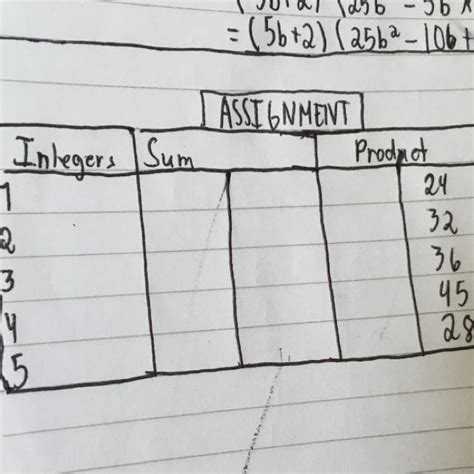 = (5b+2) (25b² - 10b +
ASSIGNMENT
Integers Sum Product
1 24
2 32
3 36
4 45
5 28